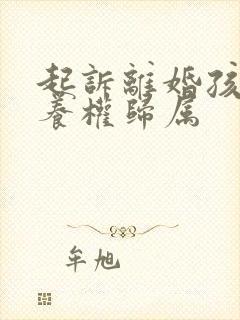 起訴離婚孩
養權歸属
牟旭